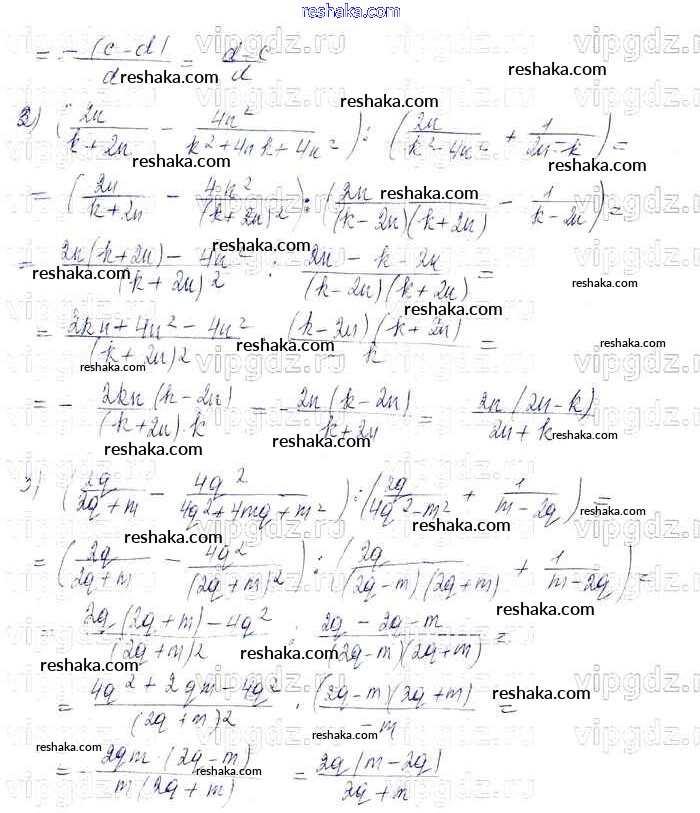 reshaka.com
= -(c-d)/d = (d-c)/d
2) (2n/(k+2n) - 4n²/(k²+4nk+4n²)) : (2n/(k²-4n²) + 1/(2n-k)) =
= (2n/(k+2n) - 4n²/(k+2n)²) : (2n/((k-2n)(k+2n)) - 1/(k-2n)) =
= (2n(k+2n) - 4n²)/(k+2n)² : (2n-k-2n)/((k-2n)(k+2n)) =
= (2kn+4n²-4n²)/(k+2n)² · (k-2n)(k+2n)/(-k) =
= - 2kn(k-2n)/((k+2n)·k) = - 2n(k-2n)/(k+2n) = 2n(2n-k)/(2n+k)
3) (2q/(2q+m) - 4q²/(4q²+4mq+m²)) : (2q/(4q²-m²) + 1/(m-2q)) =
= (2q/(2q+m) - 4q²/(2q+m)²) : (2q/((2q-m)(2q+m)) + 1/(m-2q)) =
= (2q(2q+m) - 4q²)/(2q+m)² : (2q-2q-m)/((2q-m)(2q+m)) =
= (4q²+2qm-4q²)/(2q+m)² · (2q-m)(2q+m)/(-m) =
= - 2qm·(2q-m)/(m(2q+m)) = 2q(m-2q)/(2q+m)